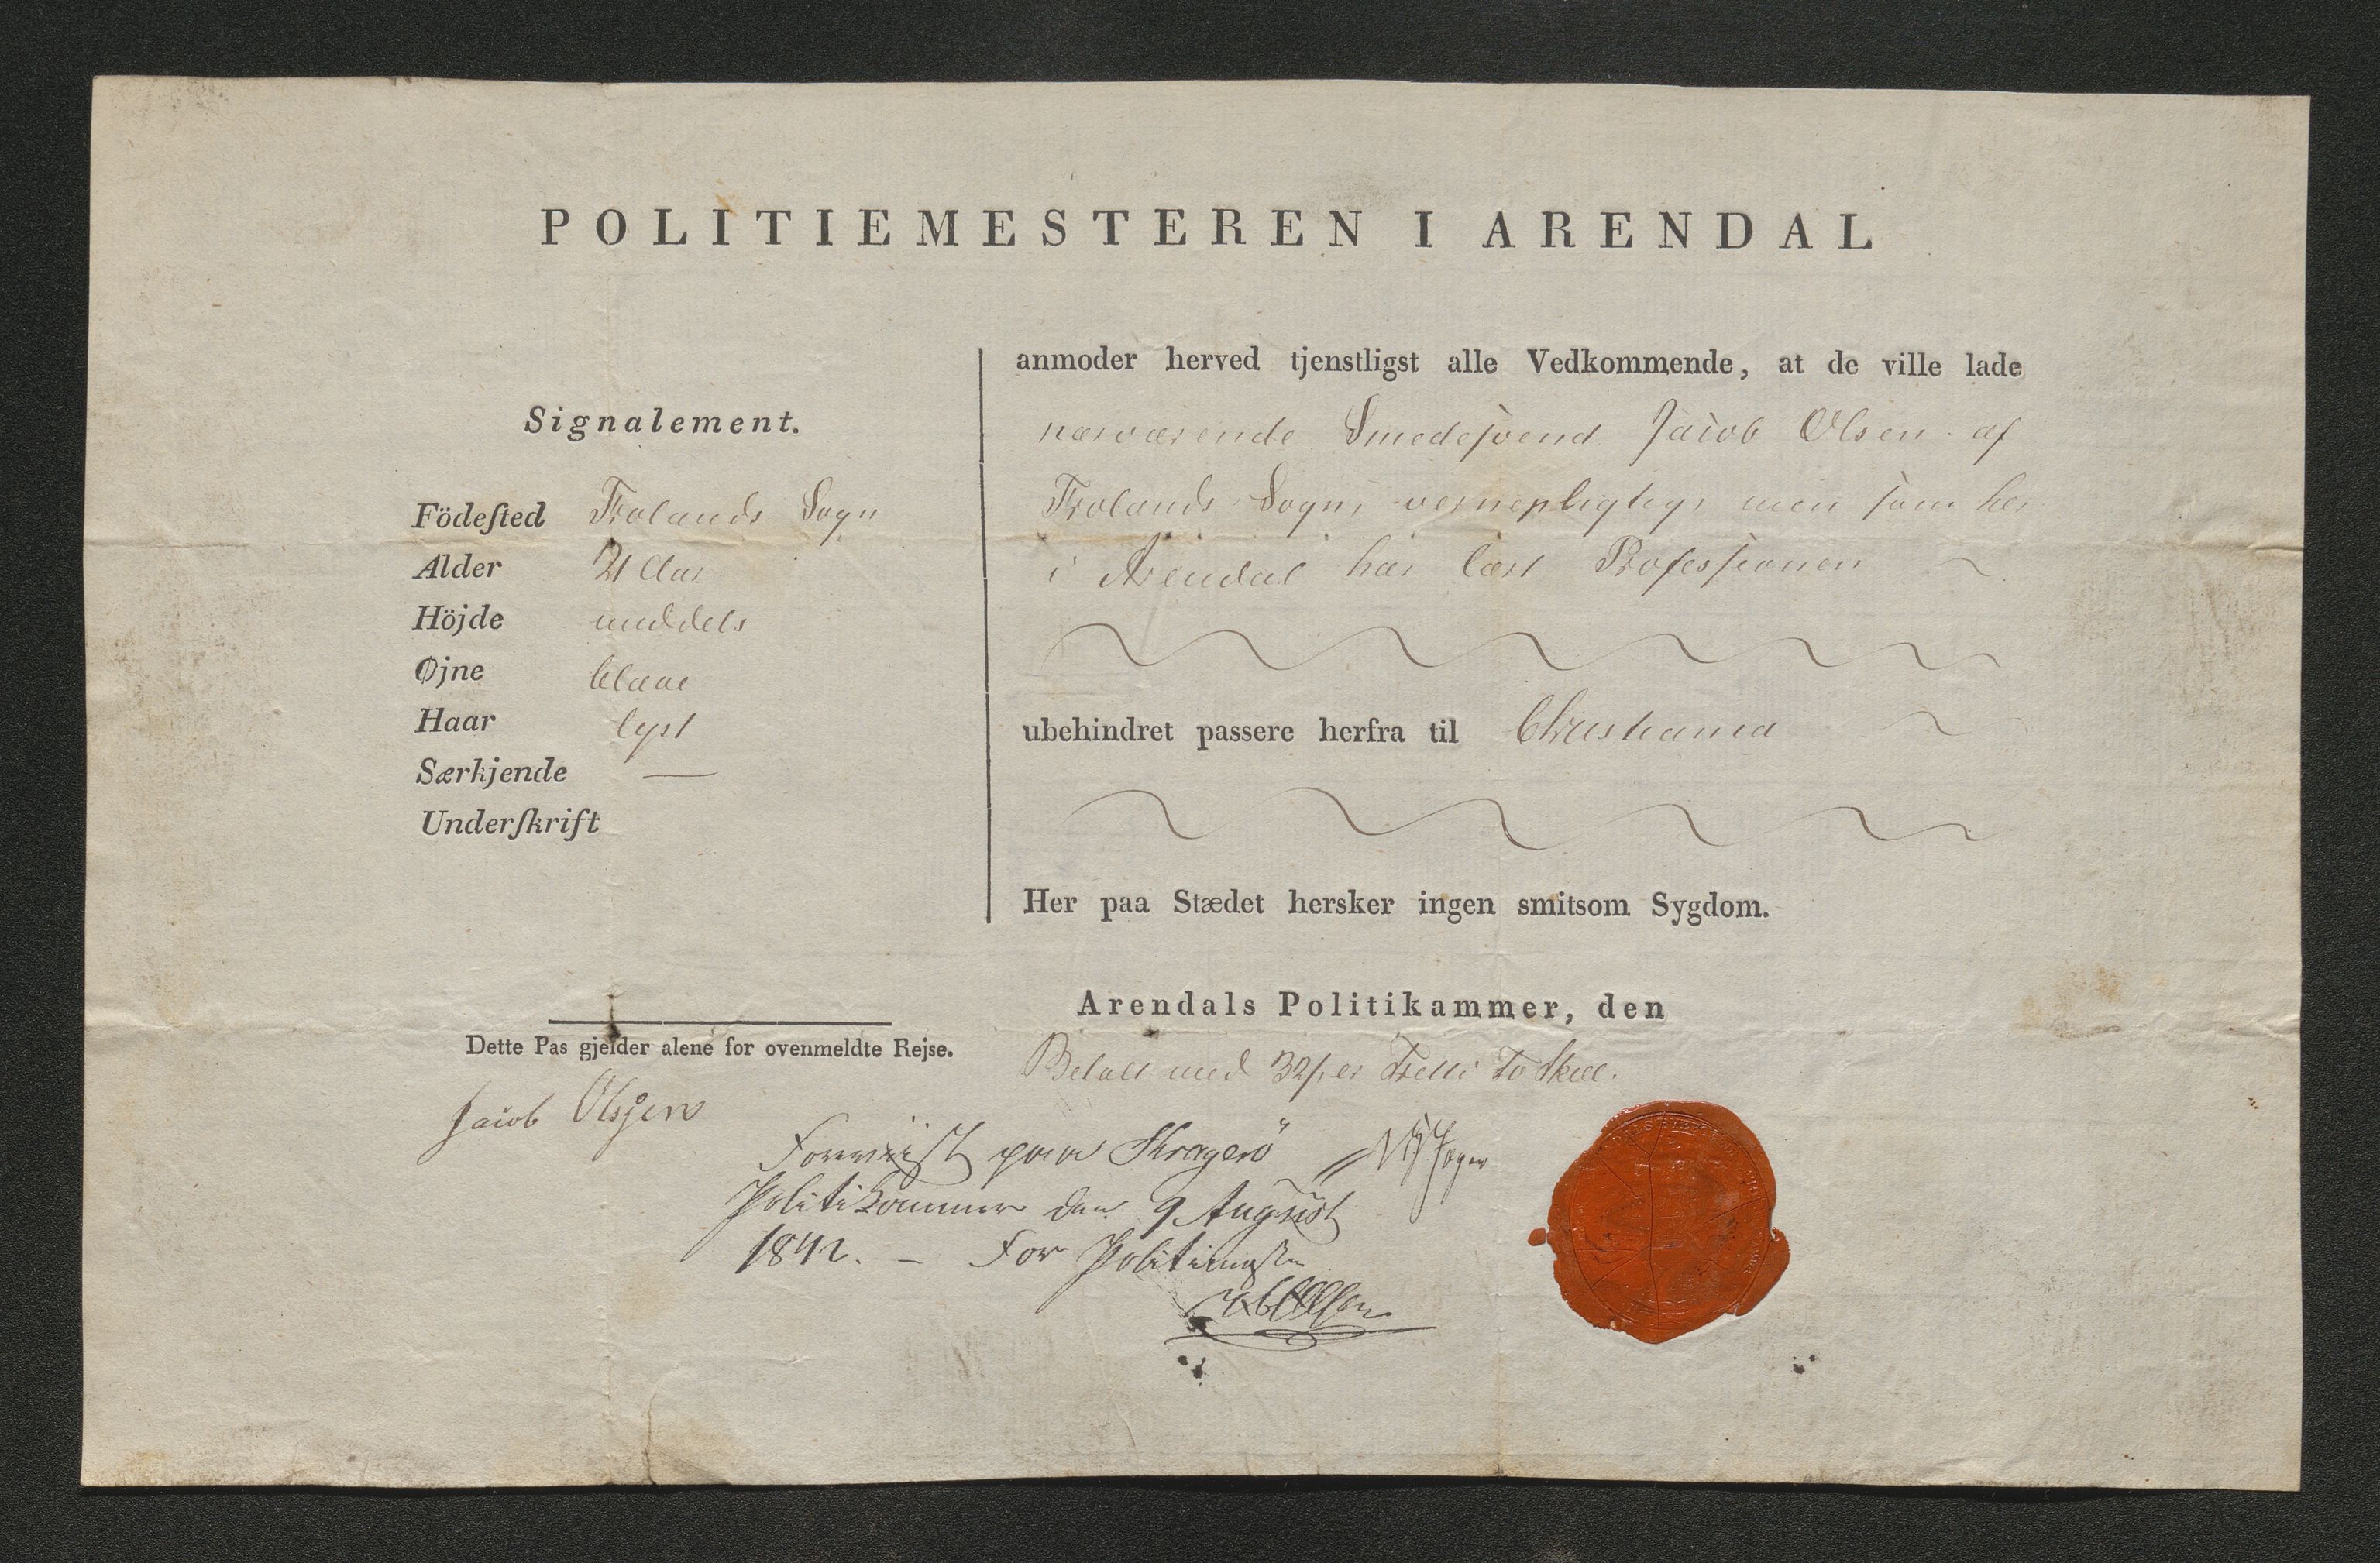 POLITIEMESTEREN I ARENDAL
Signalement.
Födeſted Frolands Sogn
Alder 21 Aar
Höjde middels
Øjne blaae
Haar lyst
Særkjende —
Underſkrift
anmoder herved tjenstligst alle Vedkommende, at de ville lade
nærværende Smedesvend Jacob Olsen af
Frolands Sogn, vernepligtig, men som her
i Arendal har lært Professionen
ubehindret passere herfra til Christiania
Her paa Stædet hersker ingen smitsom Sygdom.
Arendals Politikammer, den
Dette Pas gjelder alene for ovenmeldte Rejse.
Betalt med 32 er Tretti To Skill.
Jacob Olsen
Foreviist paa Kragerö
Politikammer den 9 August
1842. – For Politimesteren